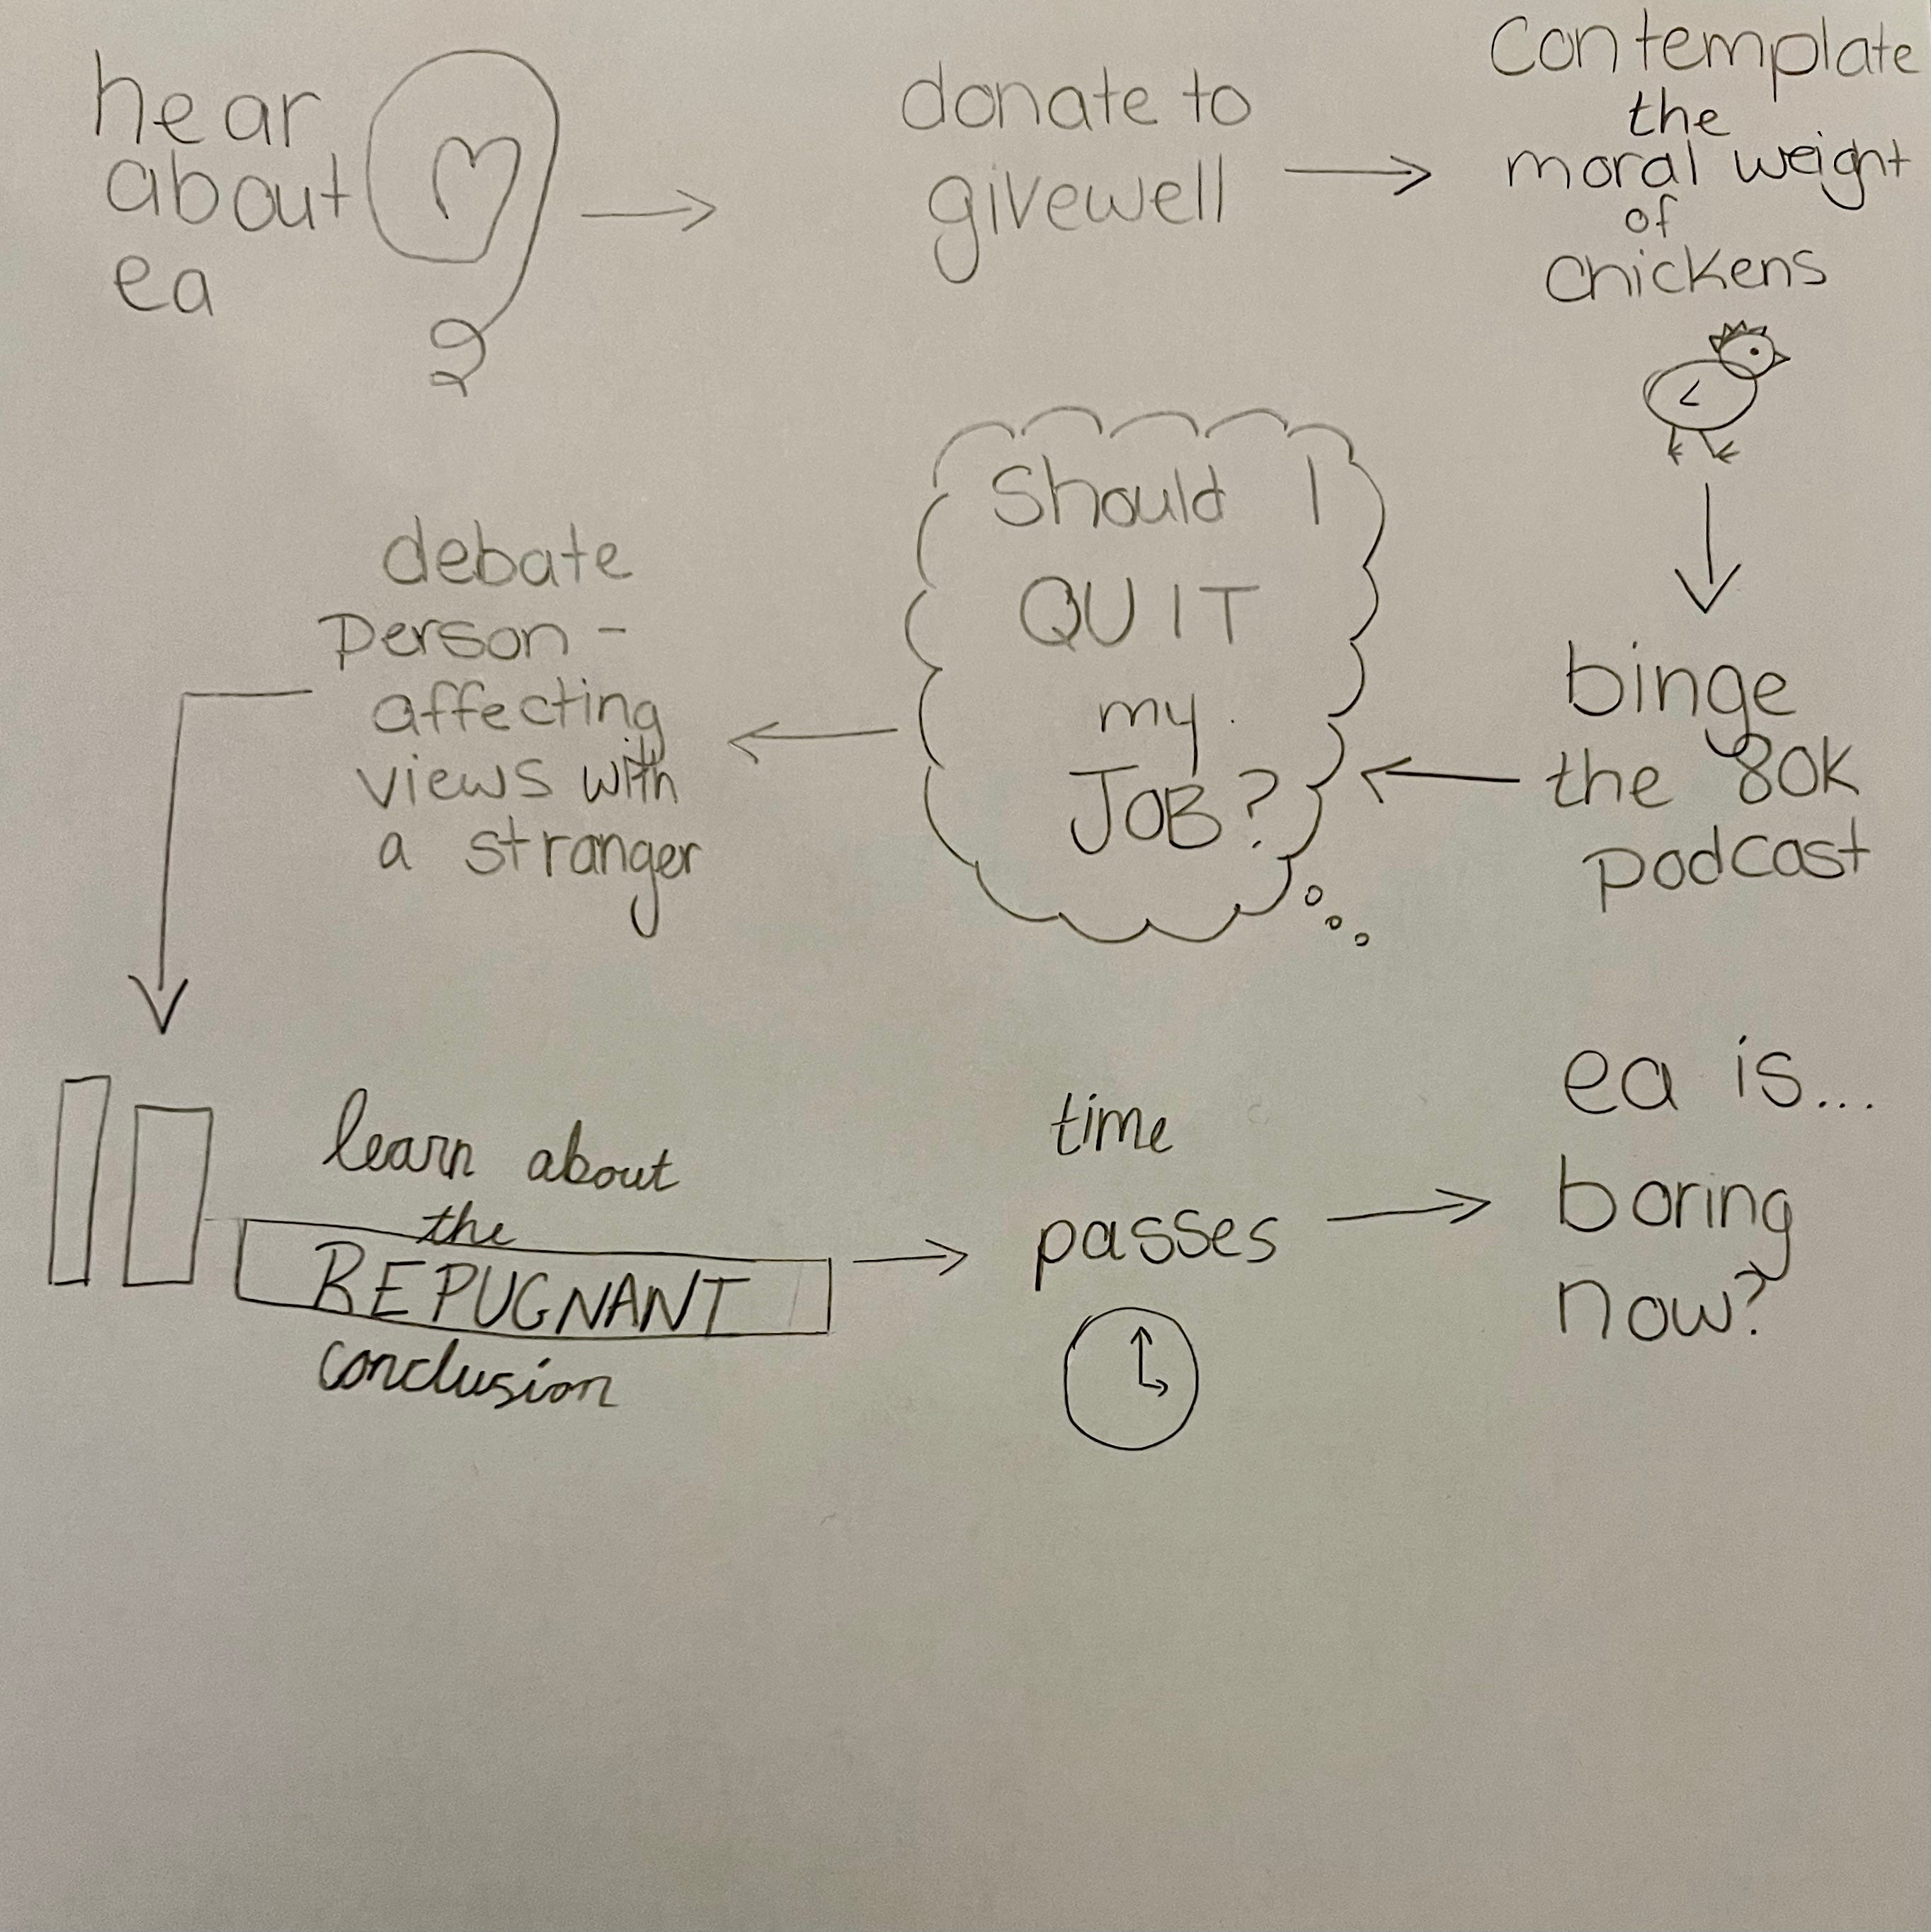 hear
about
ea
donate to
givewell
Contemplate
the
moral weight
of
Chickens
binge
the 80k
podcast
Should I
QUIT
my
JOB?
debate
Person-
affecting
views with
a stranger
learn about
the
REPUGNANT
conclusion
time
passes
ea is...
boring
now?